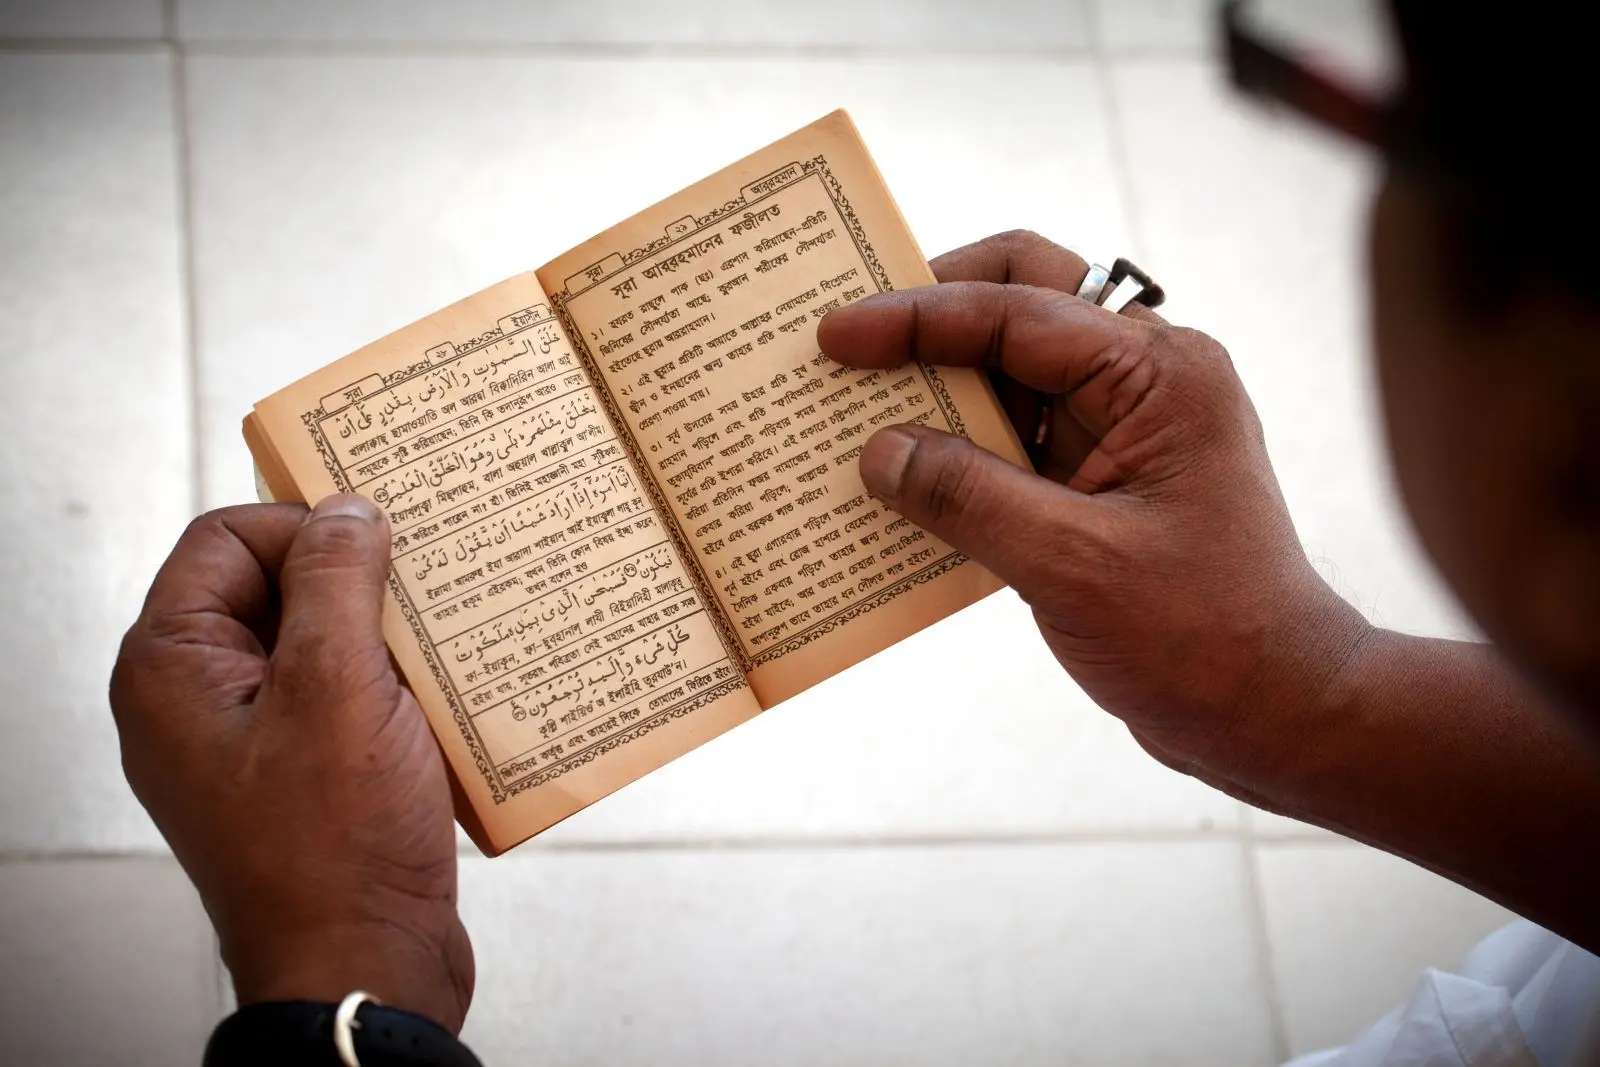 সূরা ২৮ ইয়াসীন
خَلَقَ السَّمٰوٰتِ وَالْاَرْضَ بِقٰدِرٍ عَلٰٓى اَنْ
খালাকাছ ছামাওয়াতি অল আরদ্বা বিক্বাদিরিন আলা আই
সমূহকে সৃষ্টি করিয়াছেন; তিনি কি তদানুরূপ আরও (মানুষ)
يَّخْلُقَ مِثْلَهُمْ بَلٰى وَهُوَ الْخَلّٰقُ الْعَلِيْمُ
ইয়াখলুক্বা মিছলাহুম, বালা অহুয়াল খাল্লাকুল আলীম।
সৃষ্টি করিতে পারেন না? হাঁ! তিনিই মহাজ্ঞানী মহা সৃষ্টিকর্তা,
اِنَّمَآ اَمْرُهٗٓ اِذَآ اَرَادَ شَيْـًٔا اَنْ يَّقُوْلَ لَهٗ كُنْ
ইন্নামা আমরুহু ইযা আরাদা শাইয়ান্ আই ইয়াকুলা লাহু কুন্
তাহার হুকুম এইরকম; যখন তিনি কোন বিষয় ইচ্ছা করেন,
তখন বলেন হও
فَيَكُوْنُ فَسُبْحٰنَ الَّذِيْ بِيَدِهٖ مَلَكُوْتُ
ফা-ইয়াকুন, ফা-ছুবহানাল্ লাযী বিইয়াদিহী মালাকুতু
হইয়া যায়, সুতরাং পবিত্রতা সেই মহানের যাহার হাতে সমস্ত
كُلِّ شَيْءٍ وَّاِلَيْهِ تُرْجَعُوْنَ
কুল্লি শাইয়িওঁ অ ইলাইহি তুরযাউ'ন।
জিনিষের কর্তৃত্ব এবং তাহারই দিকে তোমাদের ফিরিতে হইবে
সূরা ২৯ আররহমান
সূরা আররহমানের ফজীলত
১। হযরত রাছুলে পাক (ছঃ) এরশাদ করিয়াছেন-প্রতিটি
জিনিষের সৌন্দর্য্যতা আছে; কুরআন শরীফের সৌন্দর্য্যতা
হইতেছে ছুরায় আররাহমান।
২। এই ছুরার প্রতিটি আয়াতে আল্লাহর নেয়ামতের বিশ্লেষনে
জ্বীন ও ইনছানের জন্য তাহার প্রতি অনুগত হওয়ার উত্তম
প্রেরণা পাওয়া যায়।
৩। সূর্য উদয়ের সময় উহার প্রতি মুখ
রাহমান পড়িলে এবং প্রতি "ফাবিআইয়্যি
তুকাযযিবান" আয়াতটি পড়িবার সময় সাহাদত আঙ্গুল
সূর্যের প্রতি ইশারা করিবে। এই প্রকারে চল্লিশদিন পর্যন্ত আমল
করিয়া প্রতিদিন ফজর নামাজের পরে অজিফা বানাইয়া ইহা
একবার করিয়া পড়িলে, আল্লাহর রহমতে
হইবে এবং বরকত লাভ করিবে।
৪। এই ছুরা এগারবার পড়িলে আল্লাহর
পূর্ন হইবে এবং রোজ হাশরে বেহেশত
দৈনিক একবার পড়িলে তাহার জন্য
হইয়া যাইবে; আর তাহার চেহারা জ্যোতির্ময়
আশানুরূপ ভাবে তাহার ধন দৌলত লাভ হইবে।